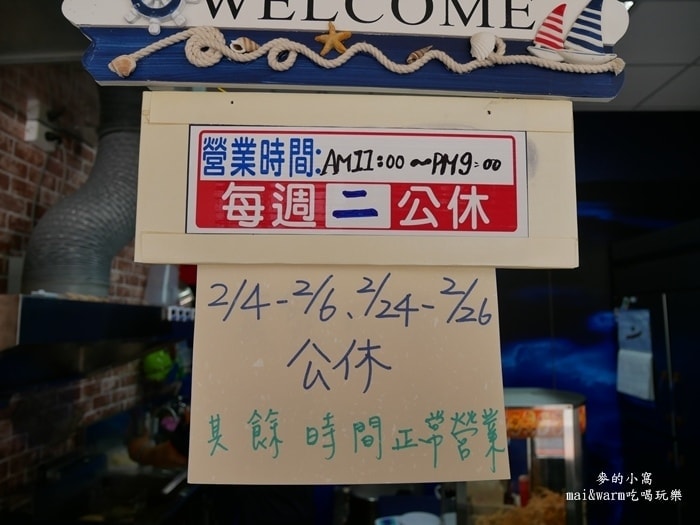 WELCOME
營業時間:AM11:00~PM9:00
每週二公休
2/4-2/6、2/24-2/26
公休
其餘時間正常營業
麥的小窩
mai&warm吃喝玩樂